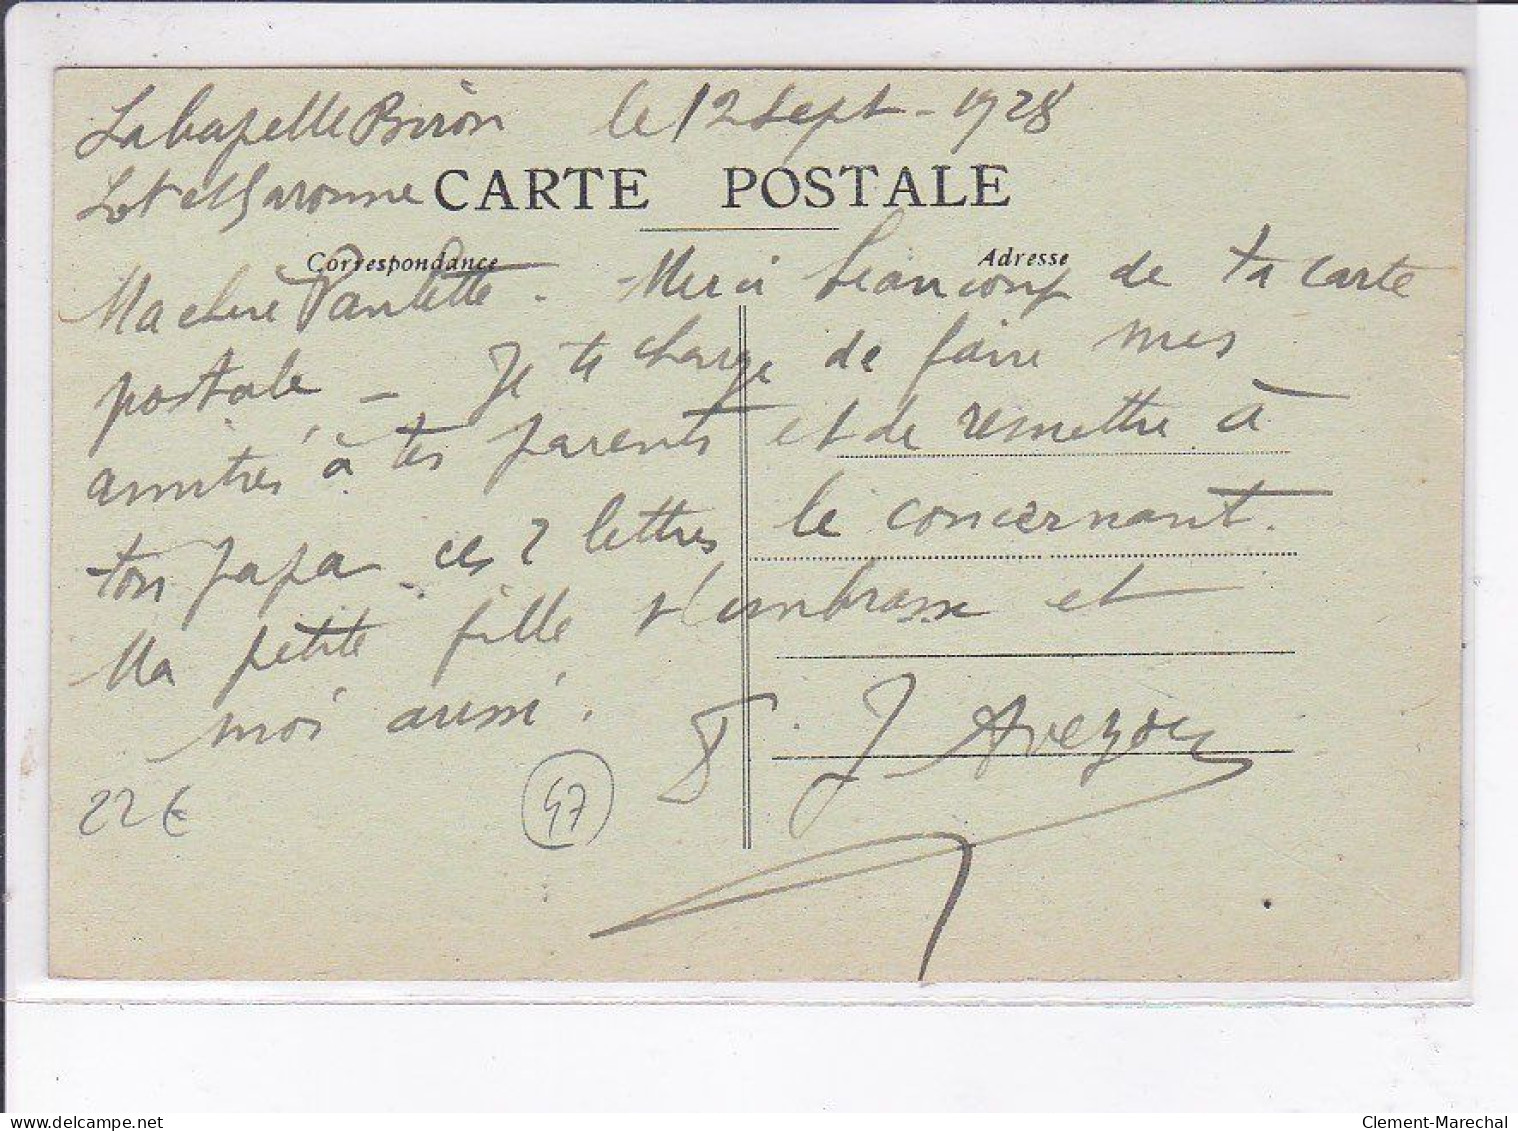 Lacapelle Biron le 12 Sept - 1928
Lot et Garonne
CARTE POSTALE
Correspondance Adresse
Ma chère Paulette - Merci beaucoup de ta carte
postale - Je te charge de faire mes
amitiés à tes parents et de remettre à
ton papa ces 2 lettres le concernant.
Ma petite fille t'embrasse et
moi aussi.
J. Avezou
22€
47
delcampe.net
Clement-Marechal